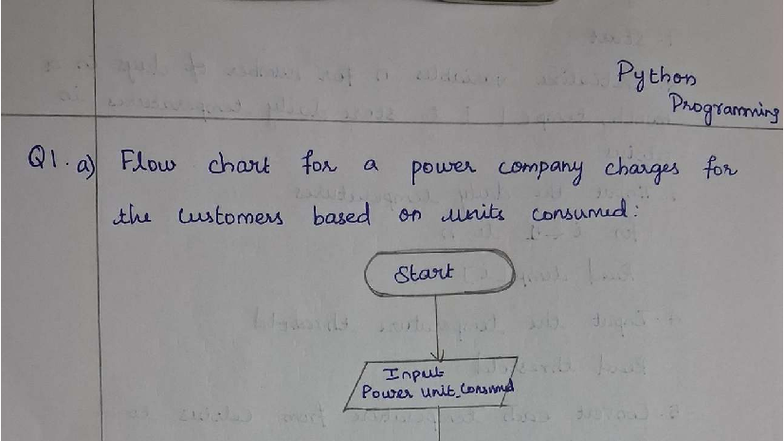 Python
Programming
Q1. a) Flow chart for a power company charges for
the customers based on units consumed:
Start
Input
Power unit_Consumed